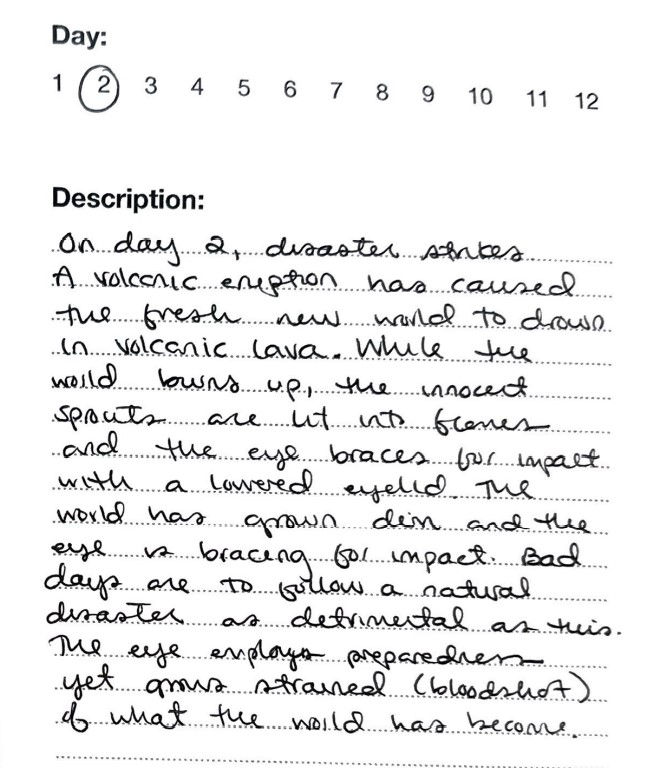 Day:
1 2 3 4 5 6 7 8 9 10 11 12
Description:
On day 2, disaster strikes.
A volcanic eruption has caused
the fresh new world to drown
in volcanic lava. While the
world burns up, the innocent
sprouts are lit into flames
and the eye braces for impact
with a lowered eyelid. The
world has grown dim and the
eye is bracing for impact. Bad
days are to follow a natural
disaster as detrimental as this.
The eye employs preparedness
yet grows strained (bloodshot)
of what the world has become.